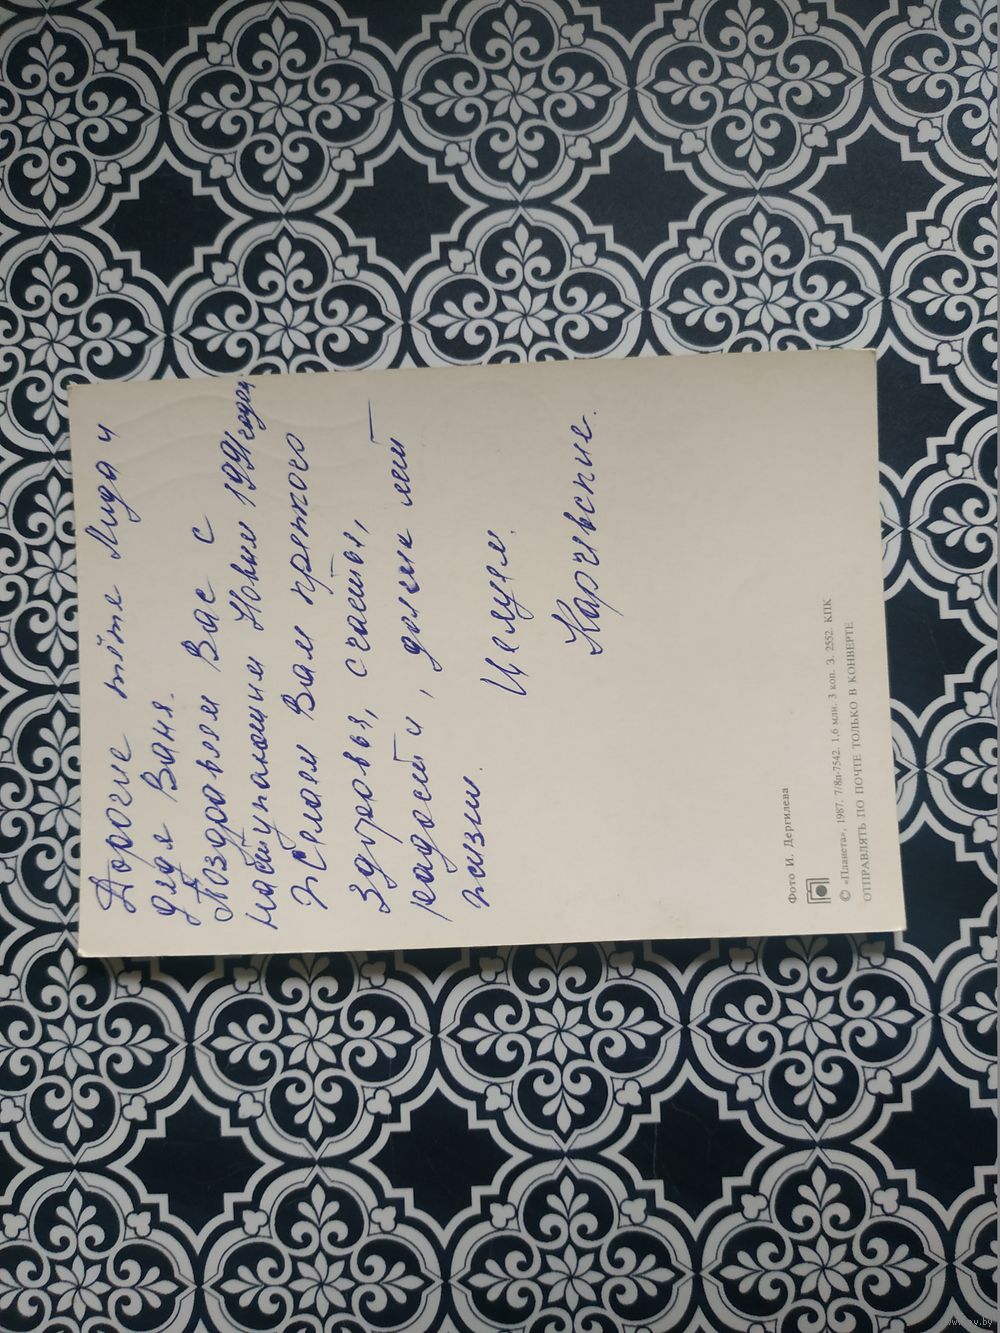 Дорогие тётя Лида и
дядя Ваня.
Поздравляем Вас с
наступающим Новым 1991 годом.
Желаем Вам крепкого
здоровья, счастья,
радости, долгих лет
жизни.
Целуем.
Карчевские.
Фото И. Дергилева
© «Планета», 1987. 7/8п-7542. 1,6 млн. 3 коп. З. 2552. КПК
ОТПРАВЛЯТЬ ПО ПОЧТЕ ТОЛЬКО В КОНВЕРТЕ